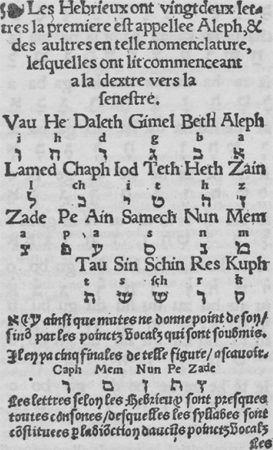 Les Hebrieux ont vingtdeux let-
tres la premiere est appellee Aleph, &
des aultres en telle nomenclature,
lesquelles ont lit commenceant
a la dextre vers la
senestre.
Vau He Daleth Gimel Beth Aleph
i h d g b a
ו ה ד ג ב א
Lamed Chaph Iod Teth Heth Zain
l ch i t h z
ל כ י ט ח ז
Zade Pe Ain Samech Nun Mem
a p a s n m
צ פ ע ס נ מ
Tau Sin Schin Res Kuph
t s sch r k
ת ש ש ר ק
ainsi que mutes ne donne point de son/
sino par les poinctz Vocalz qui sont soubmis.
Il en ya cinq finales de telle figure/ ascauoir.
Caph Mem Nun Pe Zade
ך ם ן ף ץ
Les lettres selon les Hebrieux sont presques
toutes consones/ desquelles les syllabes sont
cõstituees p la diõction dauculs poinctz Vocalz
Les